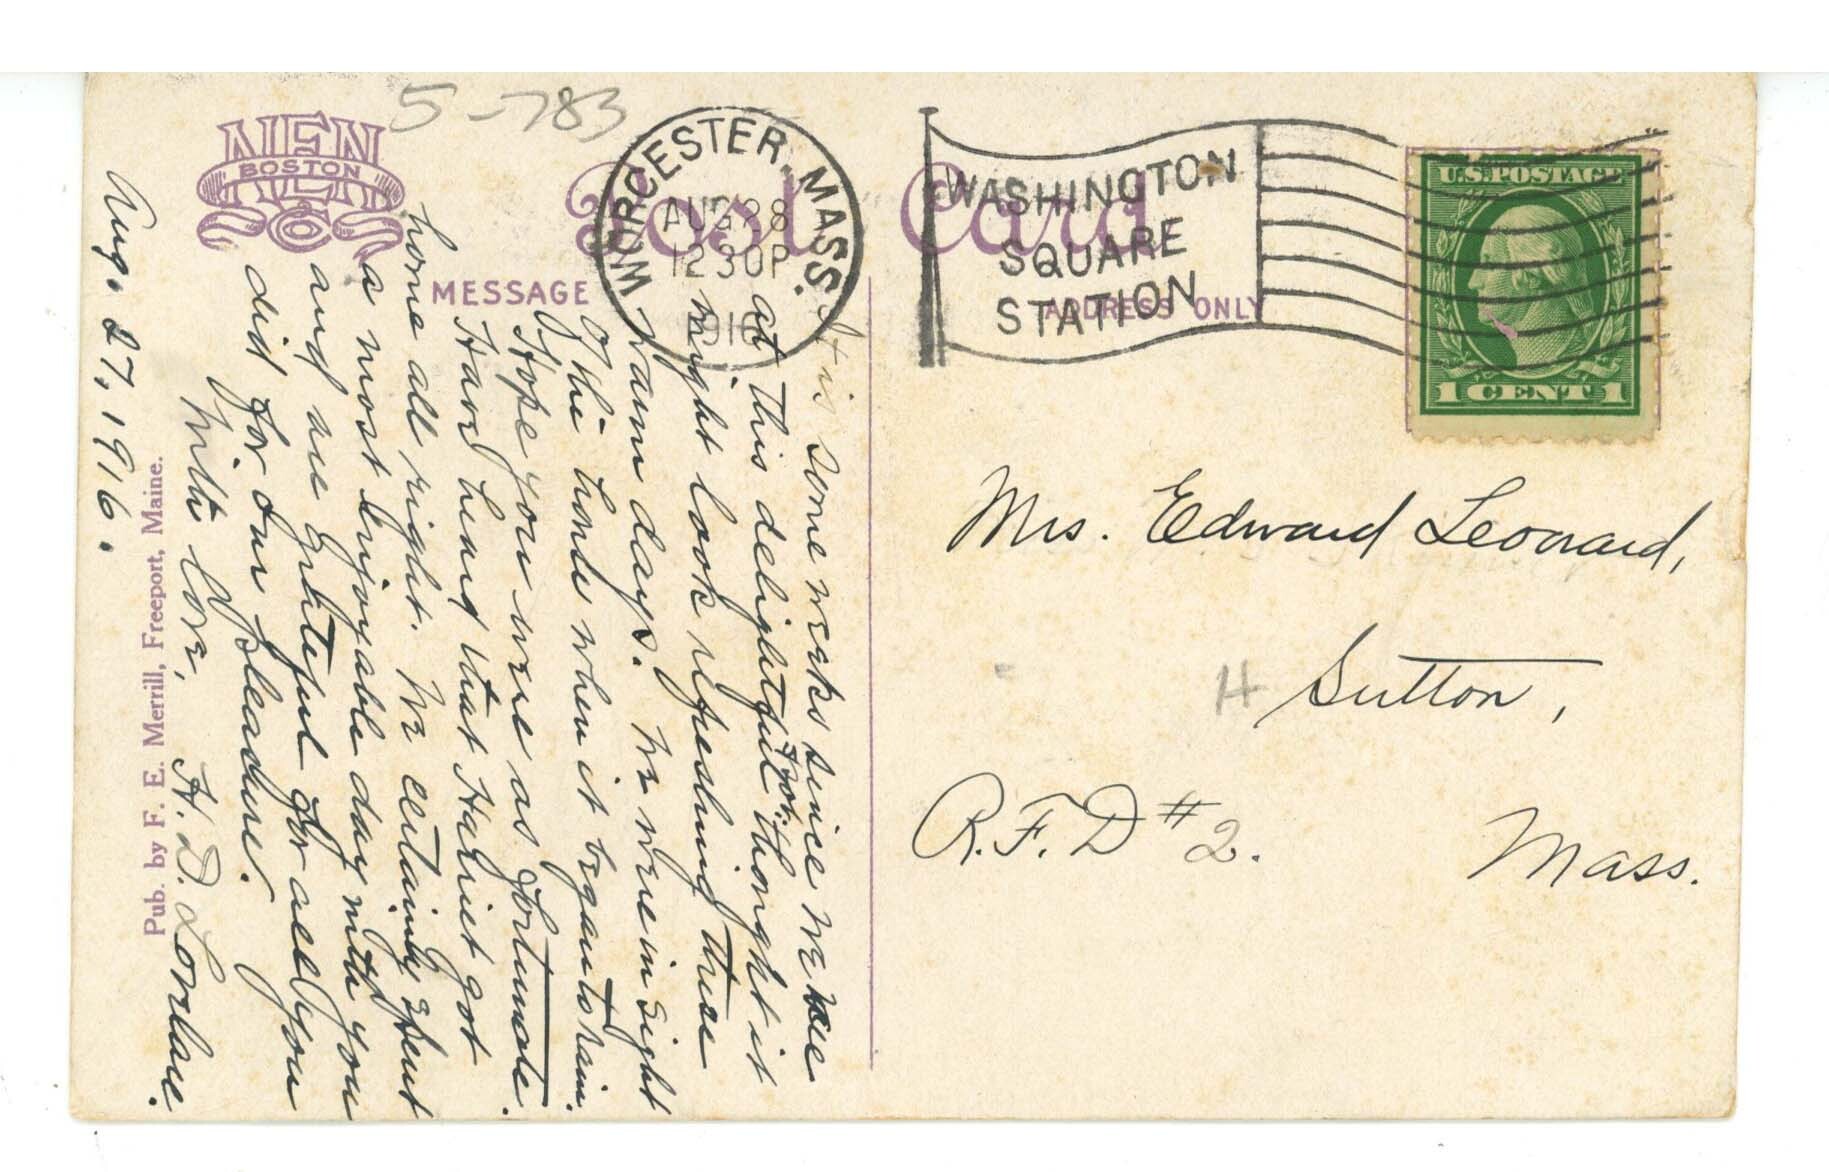 5-783
NEN
BOSTON
Post Card
MESSAGE
ADDRESS ONLY
WORCESTER, MASS.
AUG 28
1230P
1916
WASHINGTON
SQUARE
STATION
U.S. POSTAGE
1 CENT 1
Aug. 27, 1916.
It is some weeks since we were
at this delightful spot. thought it
might look refreshing these
warm days. We were in sight
of the house when it began to rain.
Hope you were as fortunate.
Have heard that Harriet got
home all right. We certainly spent
a most enjoyable day with you
and are grateful for all you
did for our pleasure.
With love, H. D. Lovelace.
Pub. by F. E. Merrill, Freeport, Maine.
Mrs. Edward Leonard,
H Sutton,
R.F.D #2. Mass.